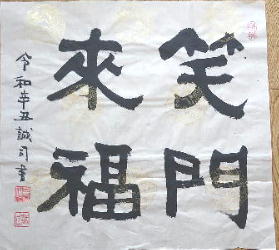 笑門
來福
令和辛丑誠司書